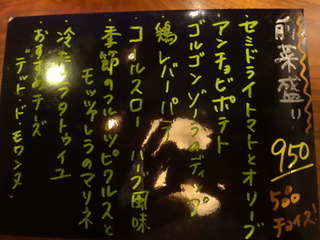 前菜盛り
950
500
チョイス!
・セミドライトマトとオリーブ
・アンチョビポテト
・ゴルゴンゾーラのディップ
・鶏レバーパテ
・コールスロー ハーブ風味
・季節のフルーツピクルスと
モッツァレラのマリネ
・冷たいラタトゥイユ
・おすすめチーズ
テット・ド・モワンヌ